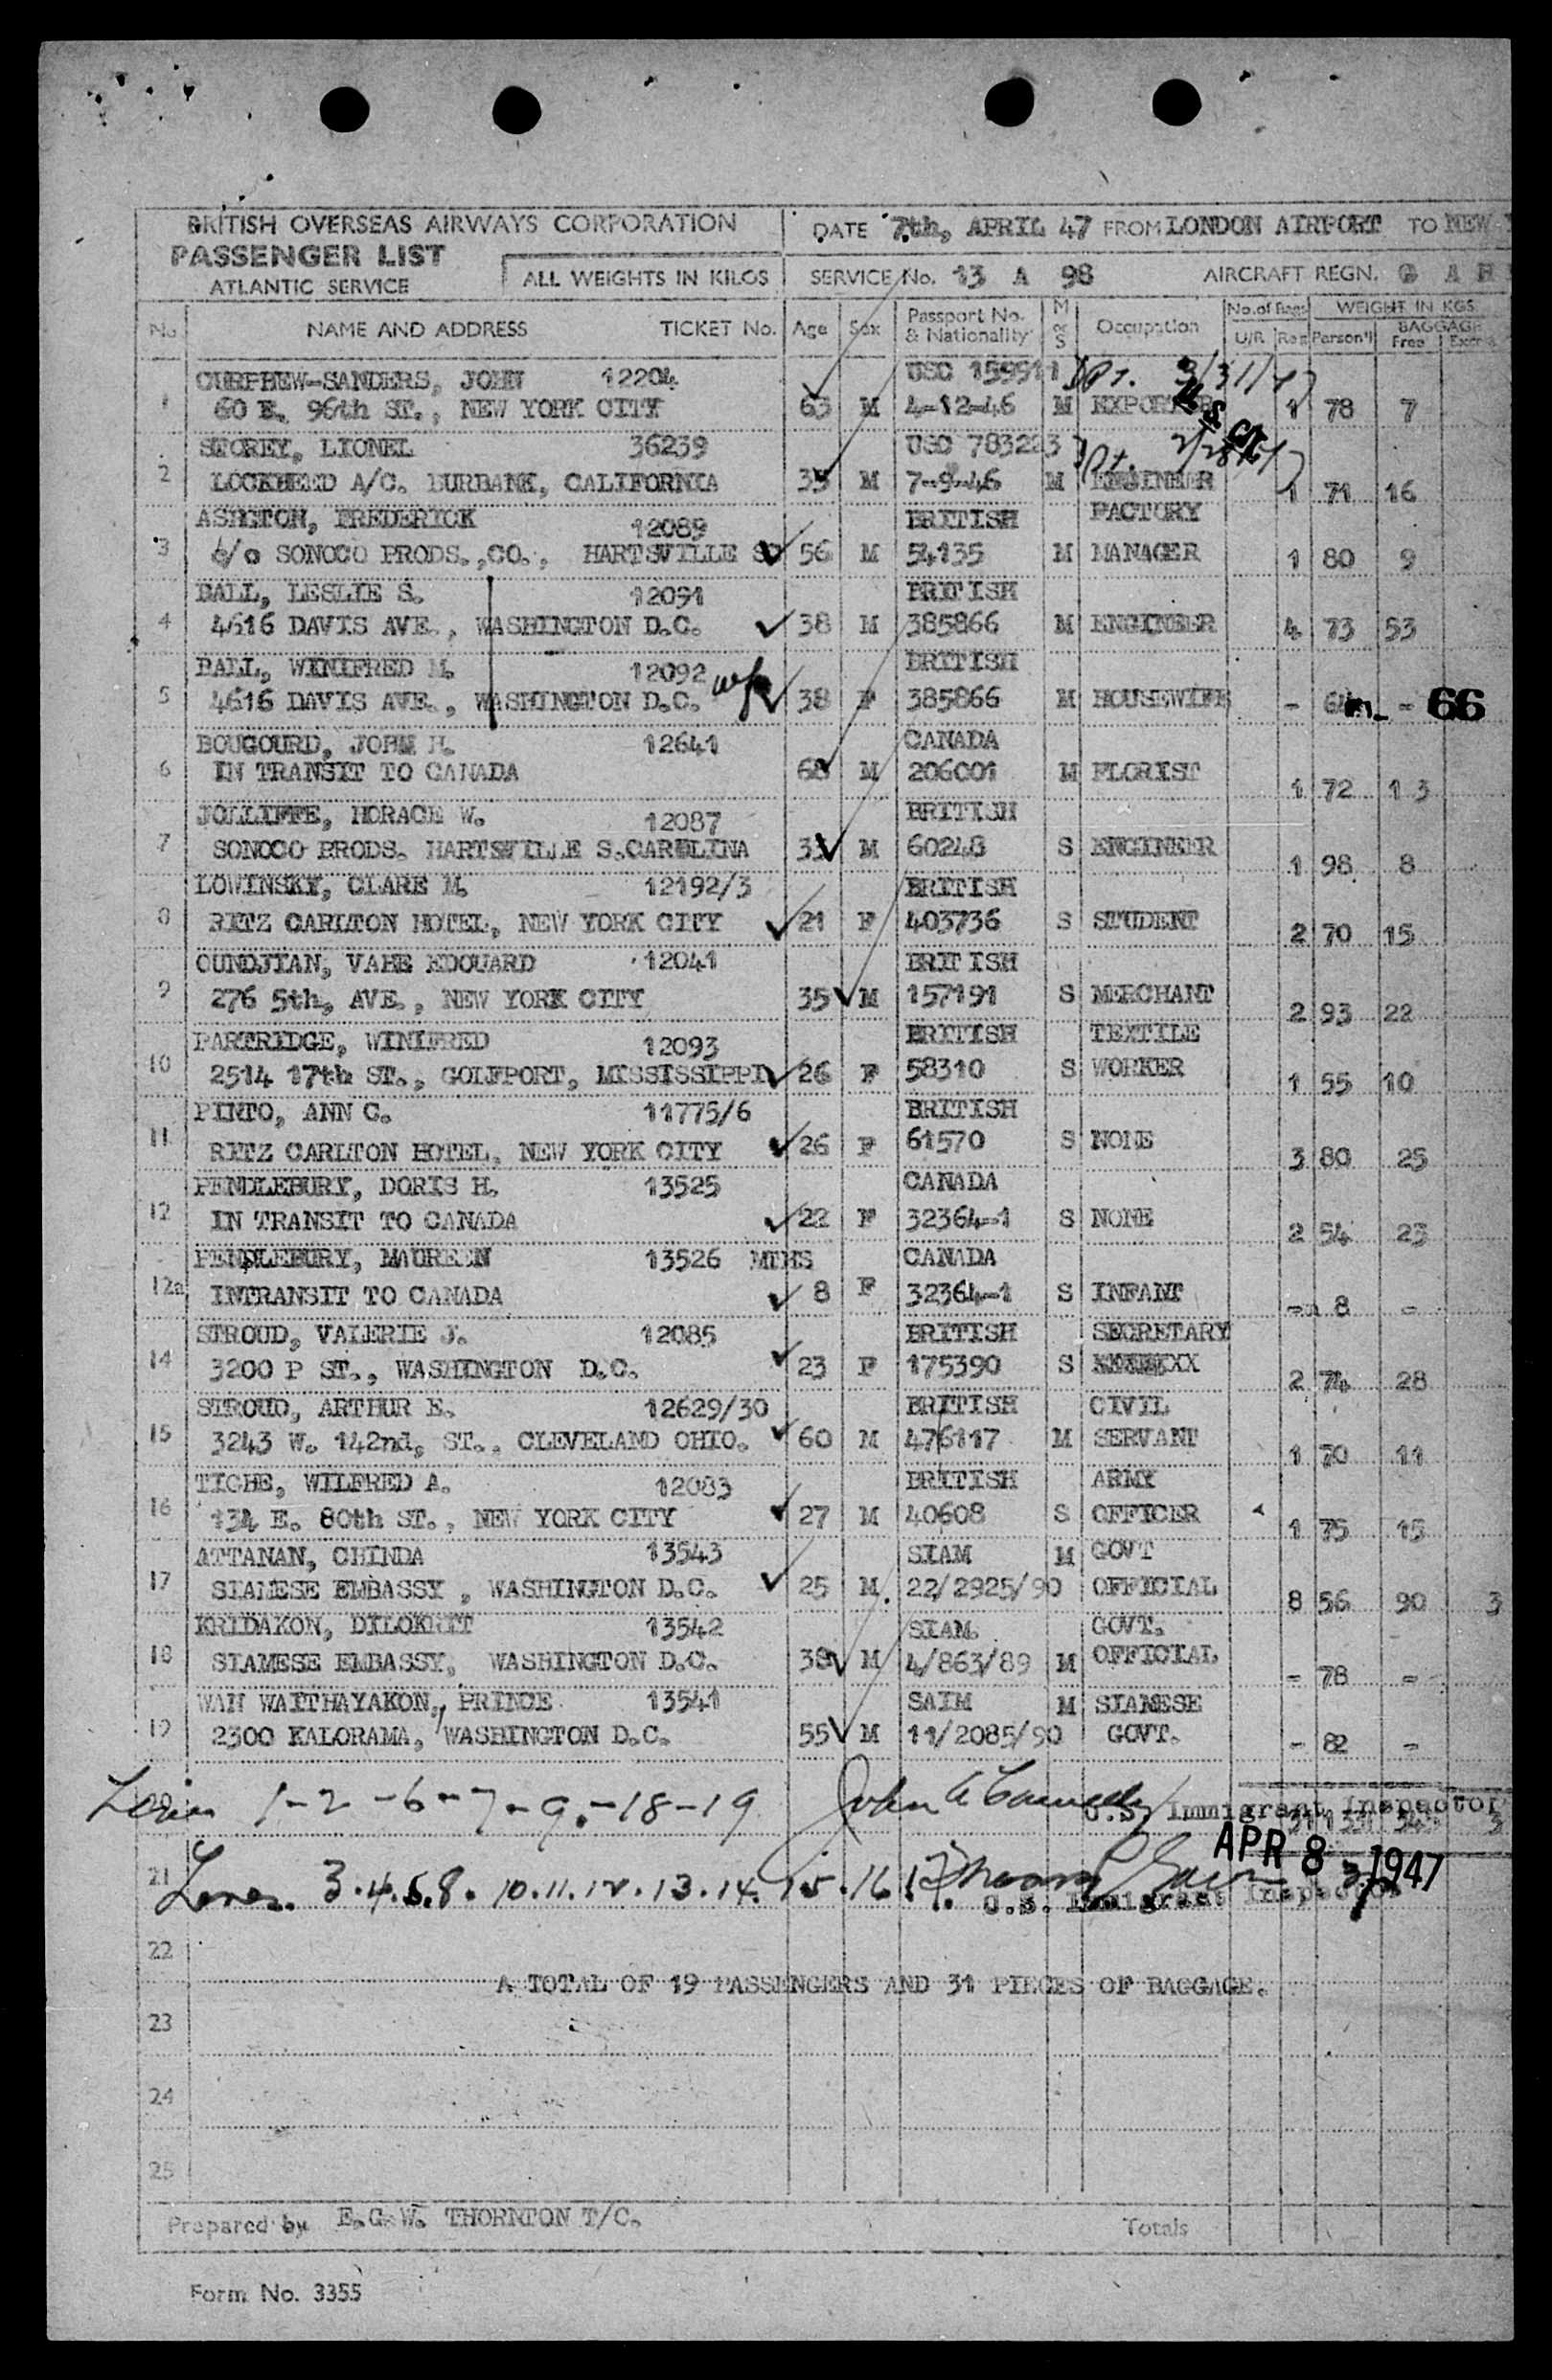 BRITISH OVERSEAS AIRWAYS CORPORATION
PASSENGER LIST
ATLANTIC SERVICE
ALL WEIGHTS IN KILOS
DATE 7th, APRIL 47 FROM LONDON AIRPORT TO NEW
SERVICE No. 13 A 98 AIRCRAFT REGN. G A H
No NAME AND ADDRESS TICKET No. Age Sex Passport No. & Nationality M or S Occupation No. of Bags U/R Reg WEIGHT IN KGS Person'l BAGGAGE Free Extra
SANDERS, JOHN 12204 USC 159511 3/31/47
1 60 E. 96th ST., NEW YORK CITY 63 M 4-12-46 M EXPORTER 1 78 7
STOREY, LIONEL 36239 USC 783223
2 LOCKHEED A/C. BURBANK, CALIFORNIA M 7-9-46 M ENGINEER 1 71 16
ASHTON, FREDERICK 12089 BRITISH FACTORY
3 c/o SONOCO PRODS.,CO., HARTSVILLE 56 M 54135 M MANAGER 1 80 9
BALL, LESLIE S. 12091 BRITISH
4 4616 DAVIS AVE., WASHINGTON D.C. 38 M 385866 M ENGINEER 4 73 53
BALL, WINIFRED M. 12092 BRITISH
5 4616 DAVIS AVE., WASHINGTON D.C. 38 F 385866 M HOUSEWIFE - - 66
BOUGOURD, JOHN H. 12641 CANADA
6 IN TRANSIT TO CANADA 68 M 206001 M FLORIST 1 72 13
JOLLIFFE, HORACE W. 12087 BRITISH
7 SONOCO PRODS. HARTSVILLE S.CAROLINA M 60248 S ENGINEER 1 98 8
LOWINSKY, CLARE M. 12192/3 BRITISH
8 RITZ CARLTON HOTEL, NEW YORK CITY 21 F 403736 S STUDENT 2 70 15
OUNDJIAN, VAHE EDOUARD 12041 BRITISH
9 276 5th, AVE., NEW YORK CITY 35 M 157191 S MERCHANT 2 93 22
PARTRIDGE, WINIFRED 12093 BRITISH TEXTILE
10 2514 17th ST., GOLFPORT, MISSISSIPPI 26 F 58310 S WORKER 1 55 10
PINTO, ANN C. 11775/6 BRITISH
11 RITZ CARLTON HOTEL, NEW YORK CITY 26 F 61570 S NONE 3 80 25
PENDLEBURY, DORIS H. 13525 CANADA
12 IN TRANSIT TO CANADA 22 F 32364-1 S NONE 2 54 23
PENDLEBURY, MAUREEN 13526 MTHS CANADA
12a INTRANSIT TO CANADA 8 F 32364-1 S INFANT - 8 -
STROUD, VALERIE J. 12085 BRITISH SECRETARY
14 3200 P ST., WASHINGTON D.C. 23 F 175390 S 2 74 28
STROUD, ARTHUR E. 12629/30 BRITISH CIVIL
15 3243 W. 142nd, ST., CLEVELAND OHIO. 60 M 476117 M SERVANT 1 70 11
TIGHE, WILFRED A. 12083 BRITISH ARMY
16 134 E. 80th ST., NEW YORK CITY 27 M 40608 S OFFICER 1 75 15
ATTANAN, CHINDA 13543 SIAM M GOVT
17 SIAMESE EMBASSY , WASHINGTON D.C. 25 M. 22/2925/90 OFFICIAL 8 56 90 3
KRIDAKON, DILOKRIT 13542 SIAM. GOVT.
18 SIAMESE EMBASSY, WASHINGTON D.C. 38 M 4/863/89 M OFFICIAL - 78 -
WAN WAITHAYAKON, PRINCE 13541 SAIM M SIAMESE
19 2300 KALORAMA, WASHINGTON D.C. 55 M 11/2085/90 GOVT. - 82 -
1-2-6-7-9-18-19 John U.S. Immigrant Inspector
APR 8 1947
21 3.4.5.8.10.11.12.13.14.15.16.17. U.S. Immigrant Inspector
22
A TOTAL OF 19 PASSENGERS AND 31 PIECES OF BAGGAGE.
23
24
25
Prepared by E.G.W. THORNTON T/C. Totals
Form No. 3355